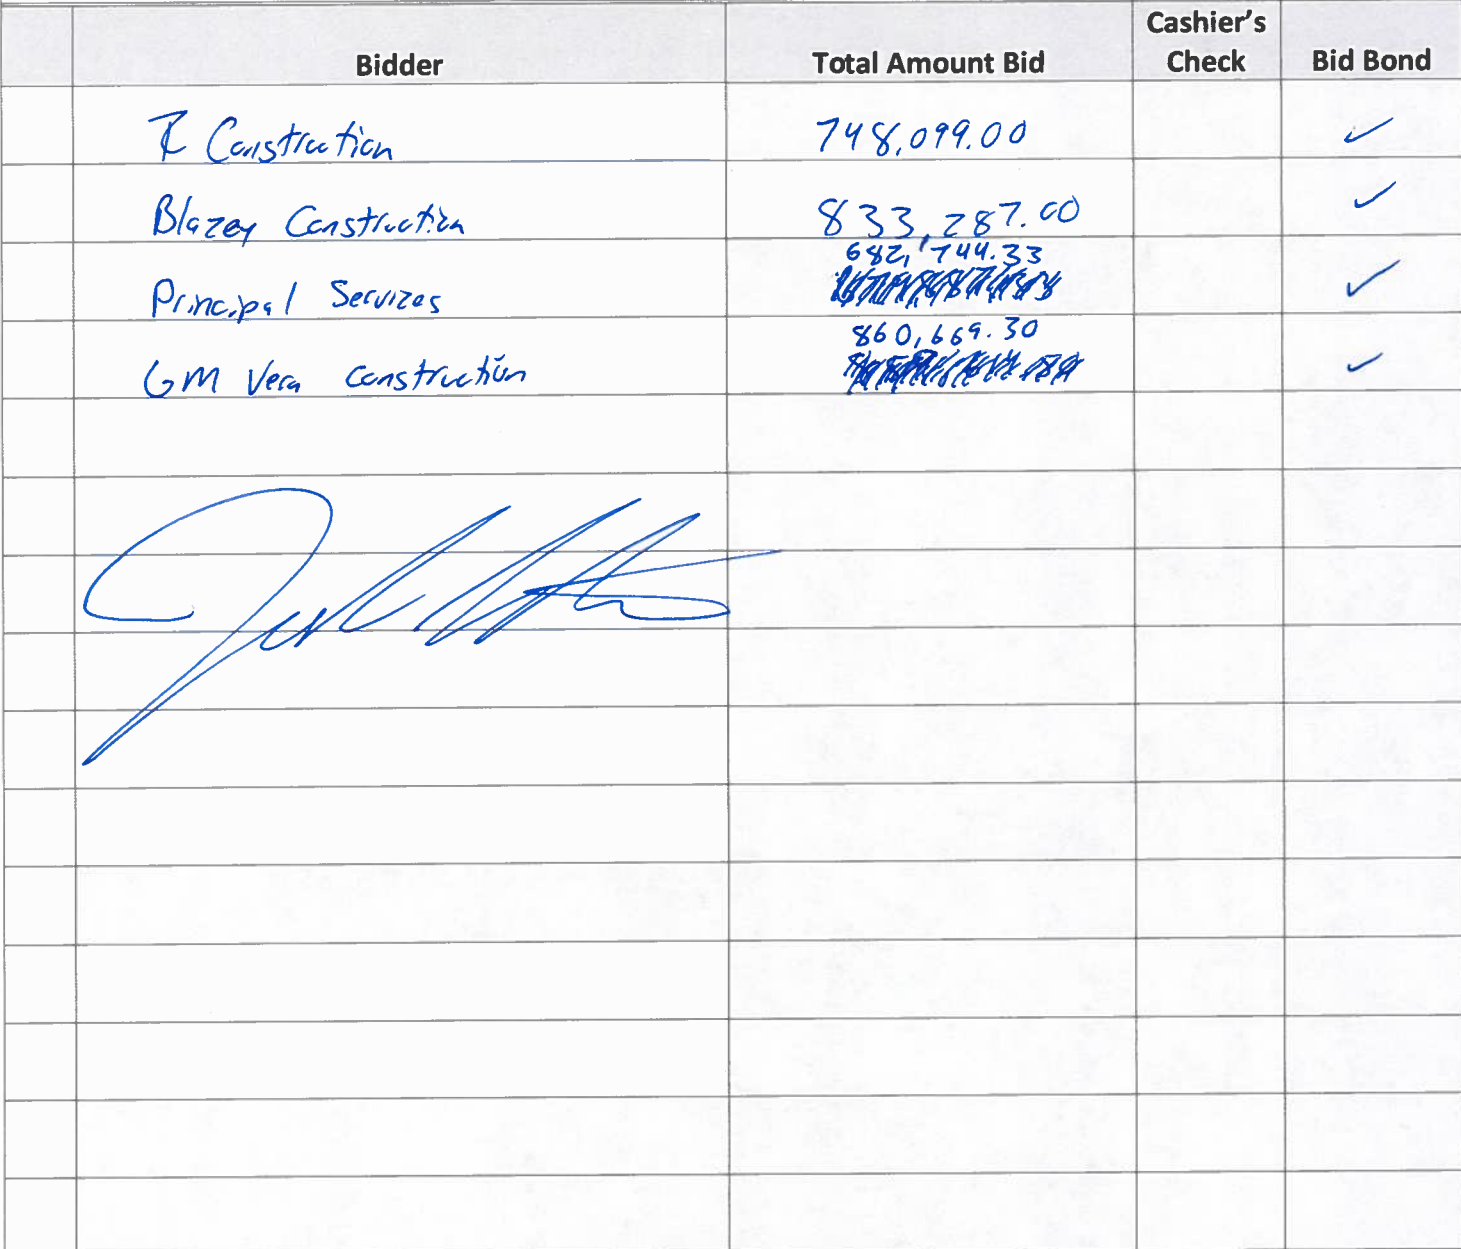 Bidder Total Amount Bid Cashier's Check Bid Bond
Construction 748,099.00 ✓
Blazey Construction 833,287.00 ✓
682,744.33
Principal Services ✓
860,669.30
GM Vera Construction ✓